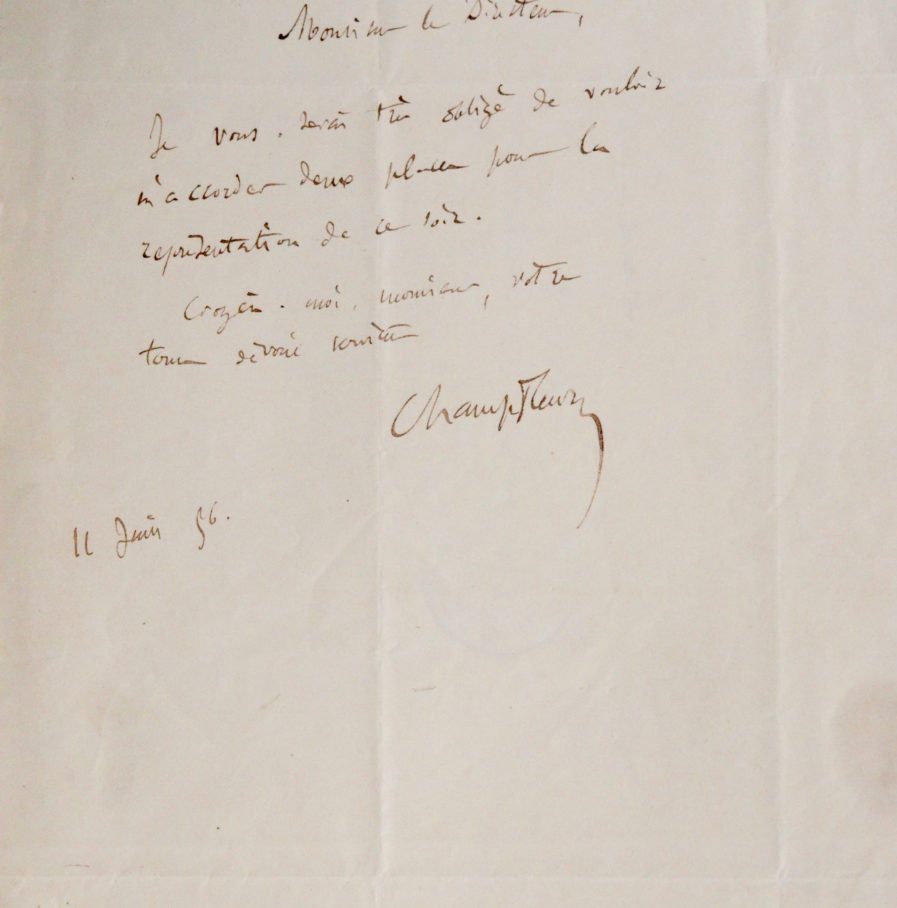 Monsieur le Directeur,
Je vous serai très obligé de vouloir
m'accorder deux places pour la
représentation de ce soir.
Croyez-moi, monsieur, votre
tout dévoué serviteur
Champfleury
11 Juin 56.